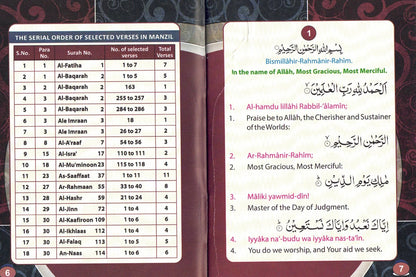 THE SERIAL ORDER OF SELECTED VERSES IN MANZIL
S.No. Para No. Surah No. No. of selected verses Total Verses
1 1 Al-Fatiha 1 1 to 7 7
2 1 Al-Baqarah 2 1 to 5 5
3 2 Al-Baqarah 2 163 1
4 3 Al-Baqarah 2 255 to 257 3
5 3 Al-Baqarah 2 284 to 286 3
6 3 Ale Imraan 3 18 1
7 3 Ale Imraan 3 26 to 27 2
8 8 Al-A'raaf 7 54 to 56 3
9 15 Al-Isra' 17 110 to 111 2
10 18 Al-Mu'minoon 23 115 to 118 4
11 23 As-Saaffaat 37 1 to 11 11
12 27 Ar-Rahmaan 55 33 to 40 8
13 28 Al-Hashr 59 21 to 24 4
14 29 Al-Jinn 72 1 to 4 4
15 30 Al-Kaafiroon 109 1 to 6 6
16 30 Al-Ikhlaas 112 1 to 4 4
17 30 Al-Falaq 113 1 to 5 5
18 30 An-Naas 114 1 to 6 6
6
1
بِسْمِ اللهِ الرَّحْمٰنِ الرَّحِيْمِ
Bismillâhir-Rahmânir-Rahîm.
In the name of Allâh, Most Gracious, Most Merciful.
اَلْحَمْدُ لِلّٰهِ رَبِّ الْعٰلَمِيْنَ ۝
1. Al-hamdu lillâhi Rabbil-'âlamîn;
1. Praise be to Allâh, the Cherisher and Sustainer
of the Worlds:
الرَّحْمٰنِ الرَّحِيْمِ ۝
2. Ar-Rahmânir-Rahîm;
2. Most Gracious, Most Merciful:
مٰلِكِ يَوْمِ الدِّيْنِ ۝
3. Mâliki yawmid-dîn!
3. Master of the Day of Judgment.
اِيَّاكَ نَعْبُدُ وَاِيَّاكَ نَسْتَعِيْنُ ۝
4. Iyyâka na'-budu wa iyyâka nas-ta'în.
4. You do we worship, and Your aid we seek.
7